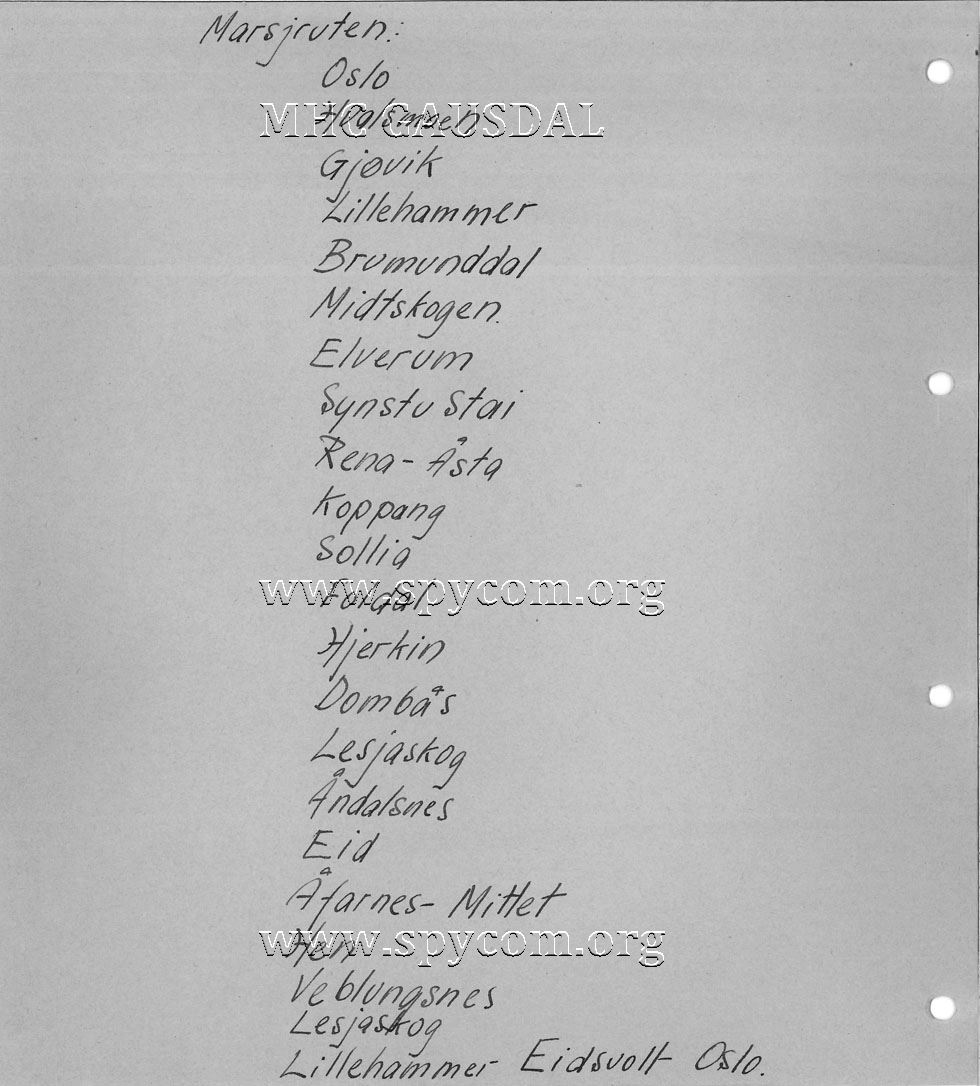 Marsjruten:
Oslo
MHG GAUSDAL
Hvalsmoen
Gjøvik
Lillehammer
Brumunddal
Midtskogen.
Elverum
Synstu Stai
Rena - Åsta
Koppang
Sollia
www.spycom.org
Foldal
Hjerkin
Dombås
Lesjaskog
Åndalsnes
Eid
Åfarnes - Mittet
www.spycom.org
Hen
Veblungsnes
Lesjaskog
Lillehammer - Eidsvolt Oslo.